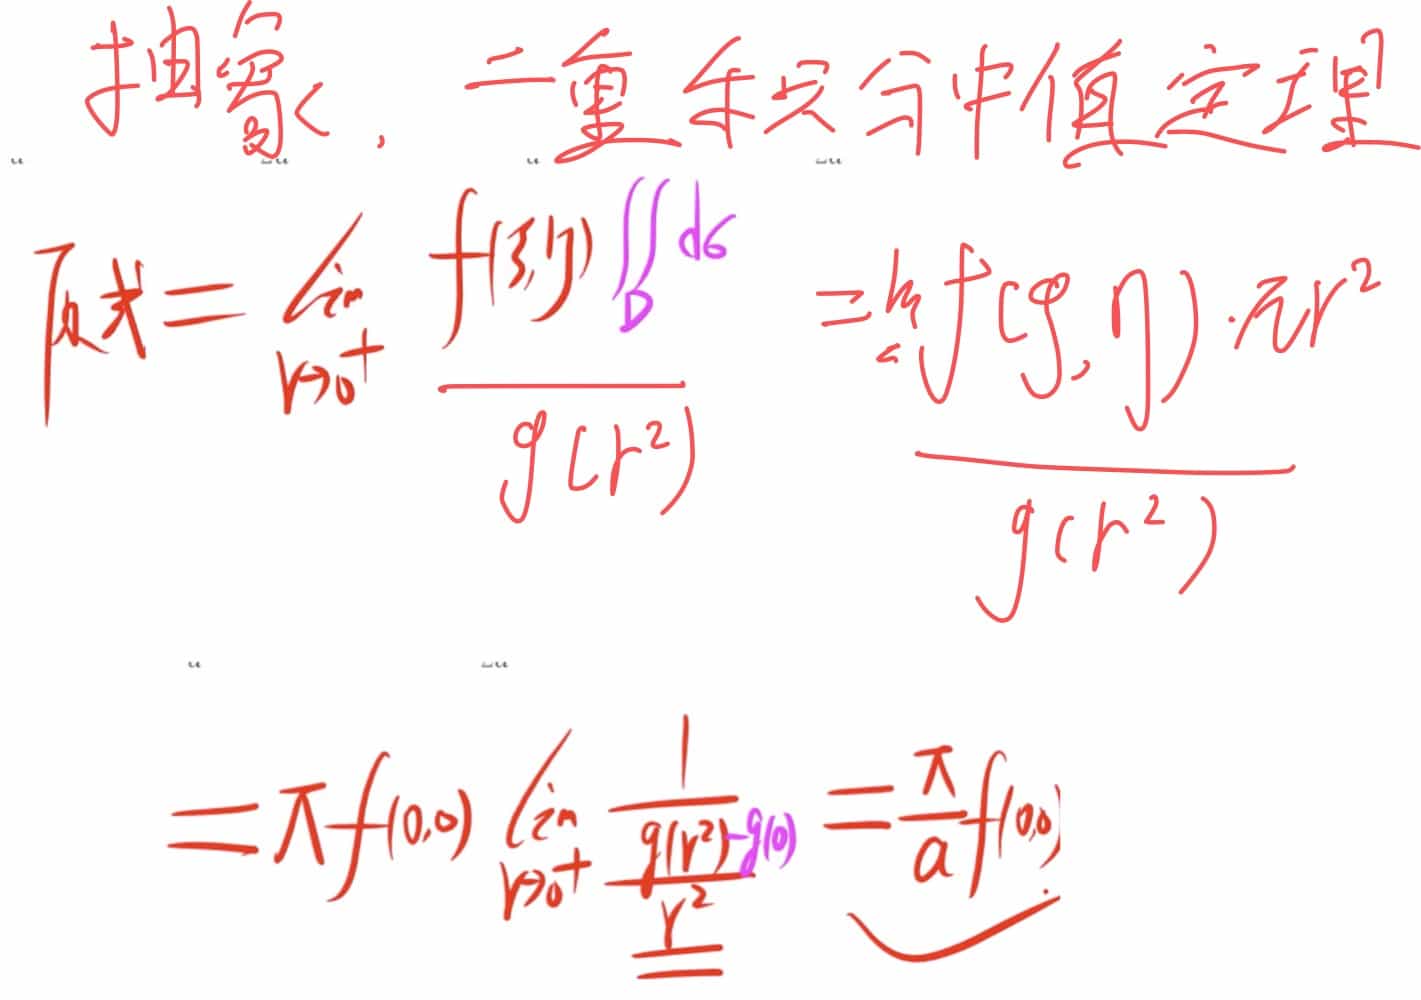 抽象、二重积分中值定理
原式 = lim r→0⁺ f(ξ,η) ∬_D dσ / g(r²) = lim f(ξ,η)·πr² / g(r²)
= π f(0,0) lim r→0⁺ 1 / ((g(r²) - g(0)) / r²) = π/a f(0,0)